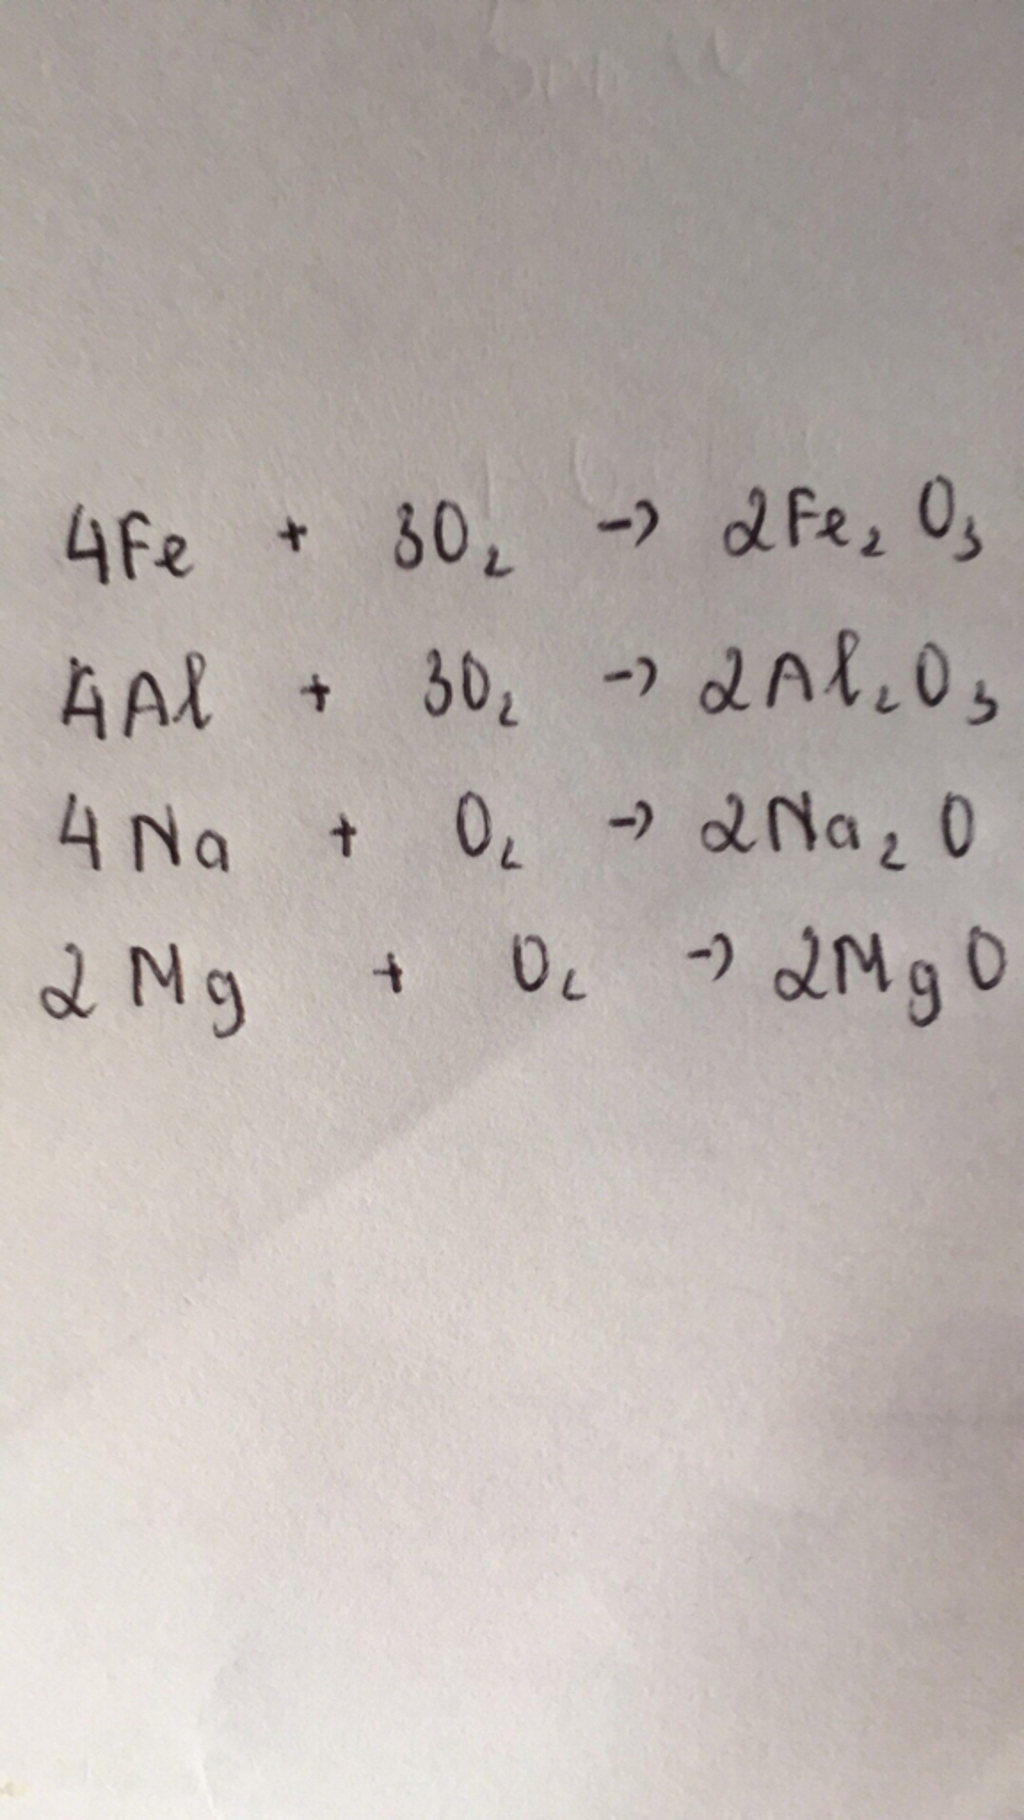 4Fe + 3O₂ → 2Fe₂O₃
4Al + 3O₂ → 2Al₂O₃
4Na + O₂ → 2Na₂O
2Mg + O₂ → 2MgO